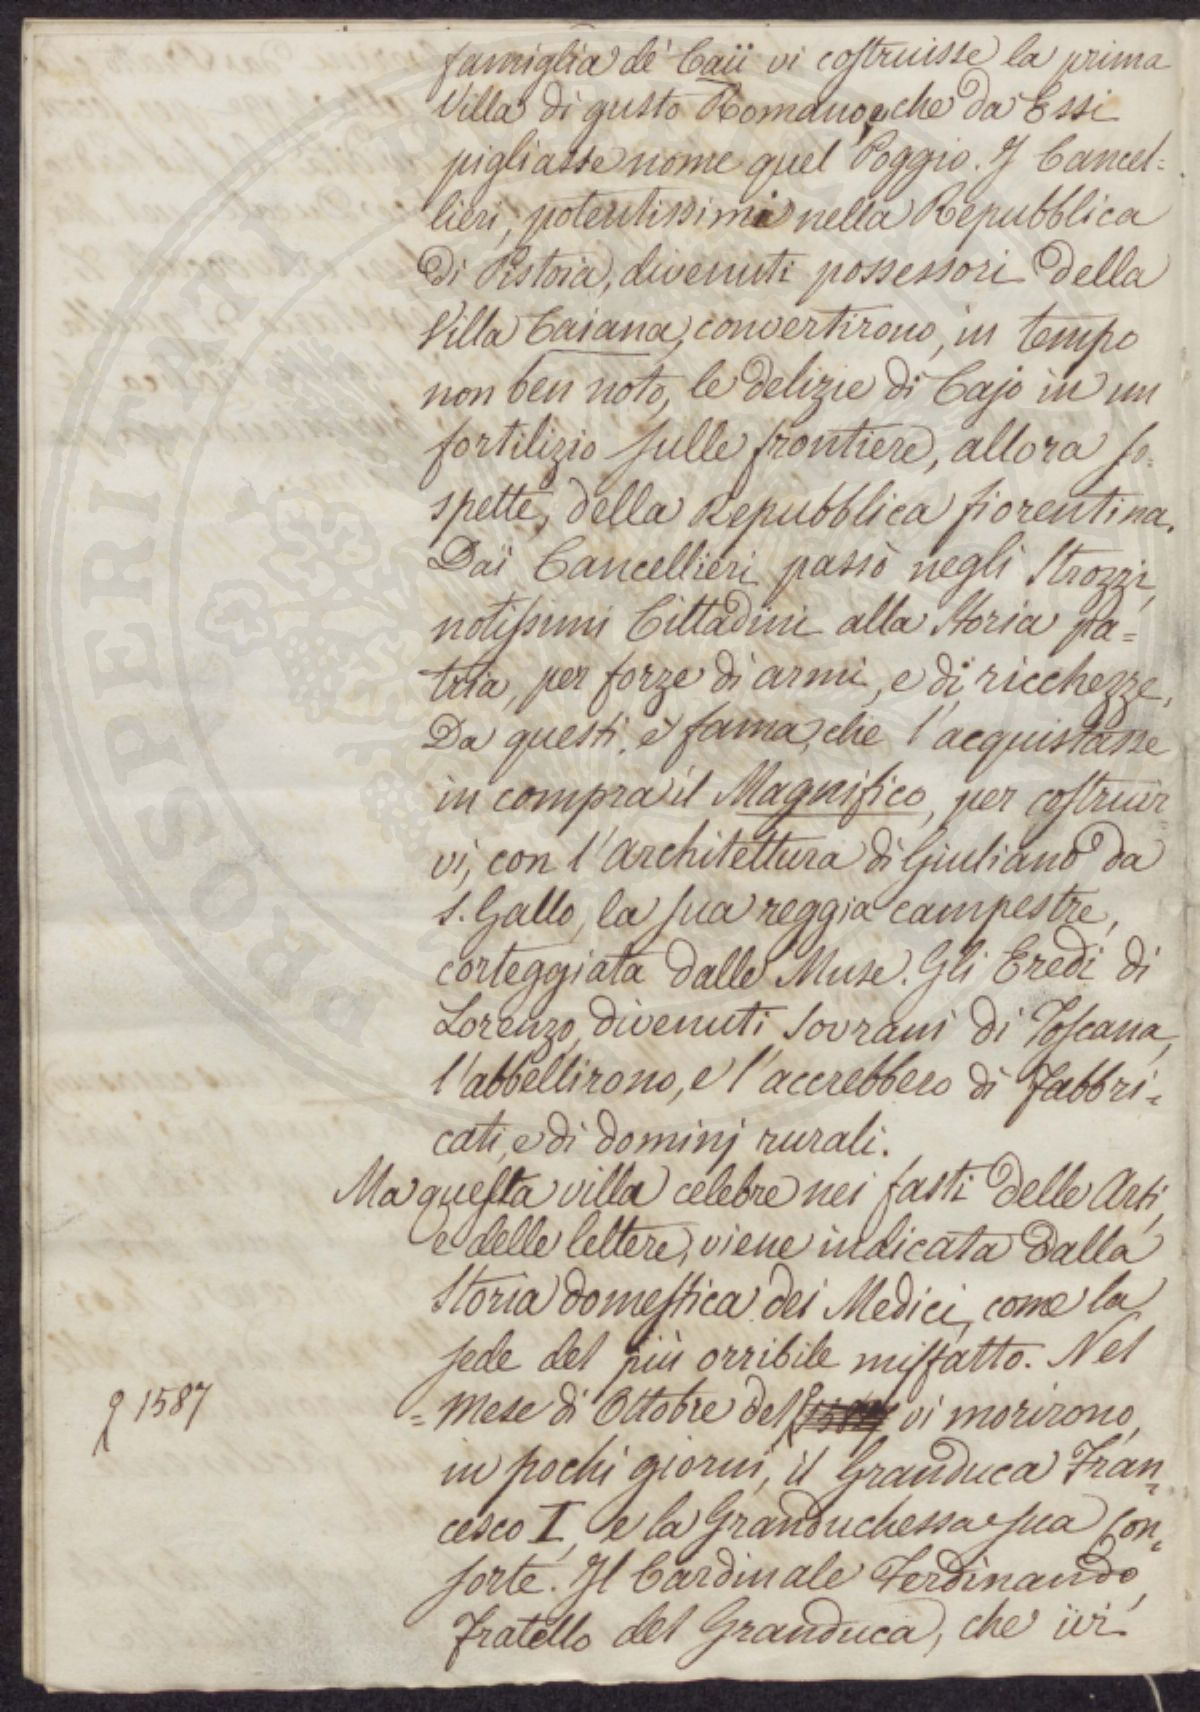 famiglia de' Caii vi costruisse la prima
Villa di gusto Romano, e che da Essi
pigliasse nome quel Poggio. I Cancel=
lieri, potentissimi nella Repubblica
di Pistoia, divenuti possessori della
Villa Caiana, convertirono, in tempo
non ben noto, le delizie di Cajo in un
fortilizio sulle frontiere, allora so=
spette, della Repubblica fiorentina.
Dai Cancellieri passò negli Strozzi,
notissimi Cittadini alla Storia pa=
tria, per forze di armi, e di ricchezze.
Da questi, è fama, che l'acquistasse
in compra il Magnifico, per costruir=
vi, con l'architettura di Giuliano da
S. Gallo, la sua reggia campestre,
corteggiata dalle Muse. Gli Eredi di
Lorenzo, divenuti Sovrani di Toscana,
l'abbellirono, e l'accrebbero di Fabbri=
cati, e di dominj rurali.
Ma questa villa celebre nei fasti delle Arti,
e delle lettere, viene indicata dalla
Storia domestica dei Medici, come la
sede del più orribile misfatto. Nel
1587
= Mese di Ottobre del vi morirono,
in pochi giorni, il Granduca Fran=
cesco I, e la Granduchessa sua Con=
sorte. Il Cardinale Ferdinando,
Fratello del Granduca, che ivi
PROSPERITATI PUBLICAE